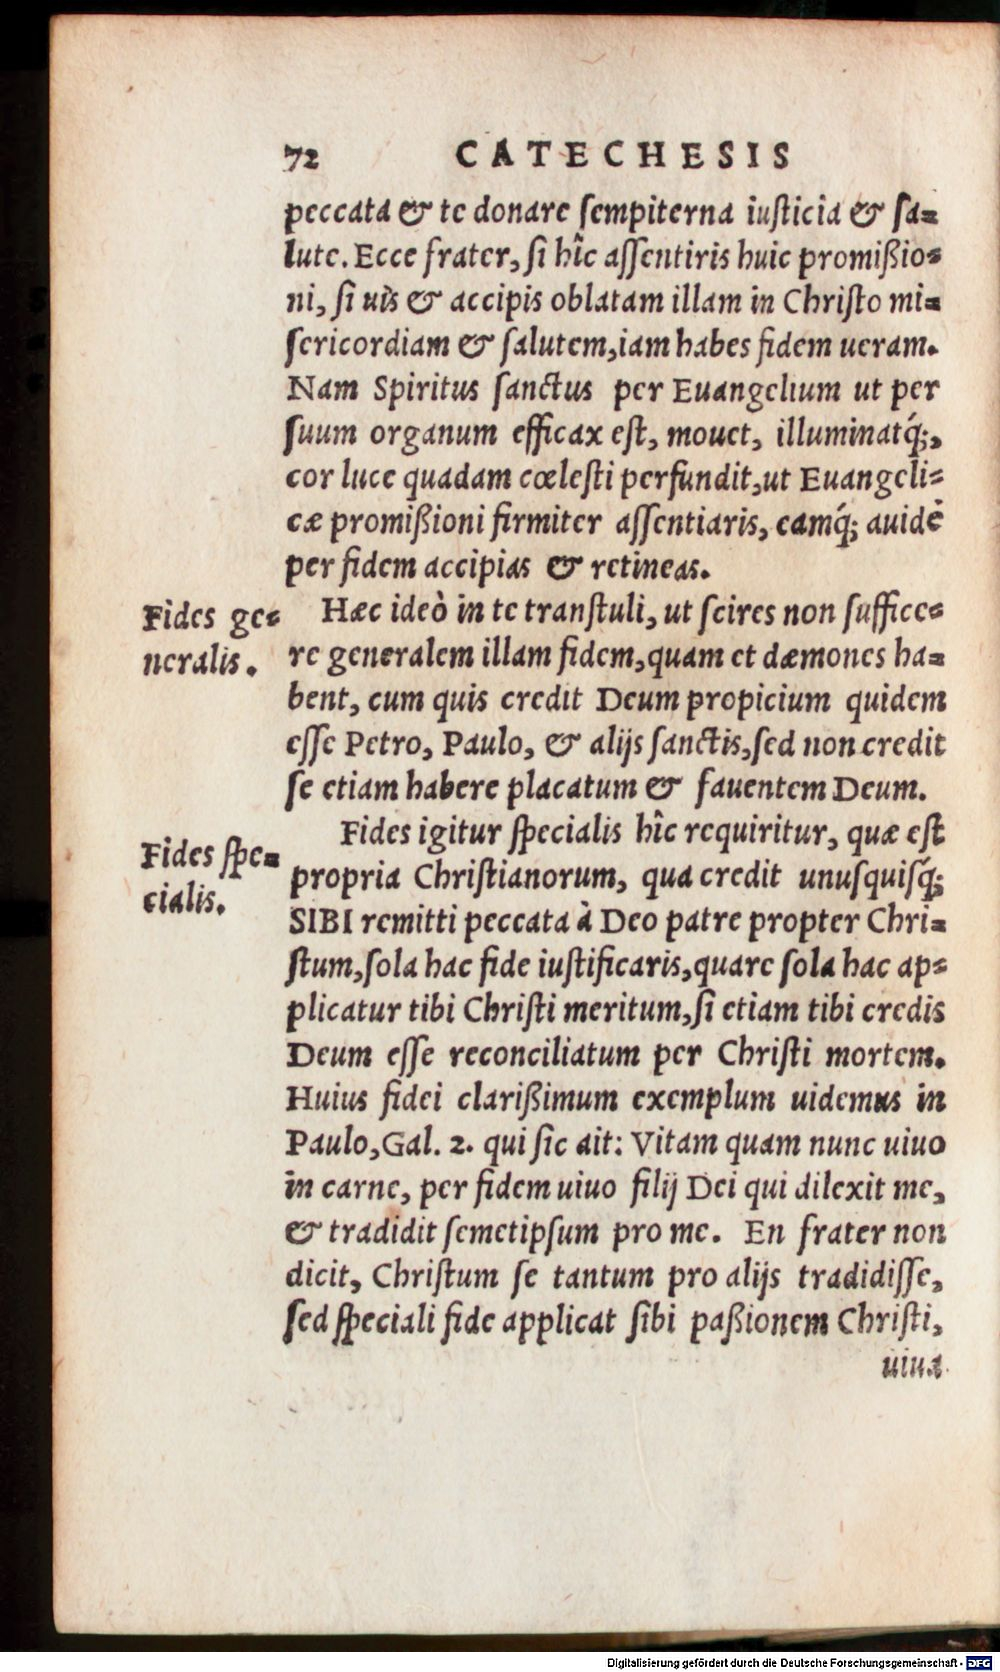 72 CATECHESIS
peccata & te donare sempiterna iusticia & sa=
lute. Ecce frater, si hîc assentiris huic promißio=
ni, si uis & accipis oblatam illam in Christo mi=
sericordiam & salutem, iam habes fidem ueram.
Nam Spiritus sanctus per Euangelium ut per
suum organum efficax est, mouet, illuminatq́;,
cor luce quadam cœlesti perfundit, ut Euangeli=
cæ promißioni firmiter assentiaris, eamq́; auidè
per fidem accipias & retineas.
Fides ge=
neralis.
Hæc ideò in te transtuli, ut scires non suffice=
re generalem illam fidem, quam et dæmones ha=
bent, cum quis credit Deum propicium quidem
esse Petro, Paulo, & alijs sanctis, sed non credit
se etiam habere placatum & fauentem Deum.
Fides spe=
cialis.
Fides igitur specialis hîc requiritur, quæ est
propria Christianorum, qua credit unusquisq́;
SIBI remitti peccata à Deo patre propter Chri=
stum, sola hac fide iustificaris, quare sola hac ap=
plicatur tibi Christi meritum, si etiam tibi credis
Deum esse reconciliatum per Christi mortem.
Huius fidei clarißimum exemplum uidemus in
Paulo, Gal. 2. qui sic ait: Vitam quam nunc uiuo
in carne, per fidem uiuo filij Dei qui dilexit me,
& tradidit semetipsum pro me. En frater non
dicit, Christum se tantum pro alijs tradidisse,
sed speciali fide applicat sibi paßionem Christi,
uiua
Digitalisierung gefördert durch die Deutsche Forschungsgemeinschaft - DFG